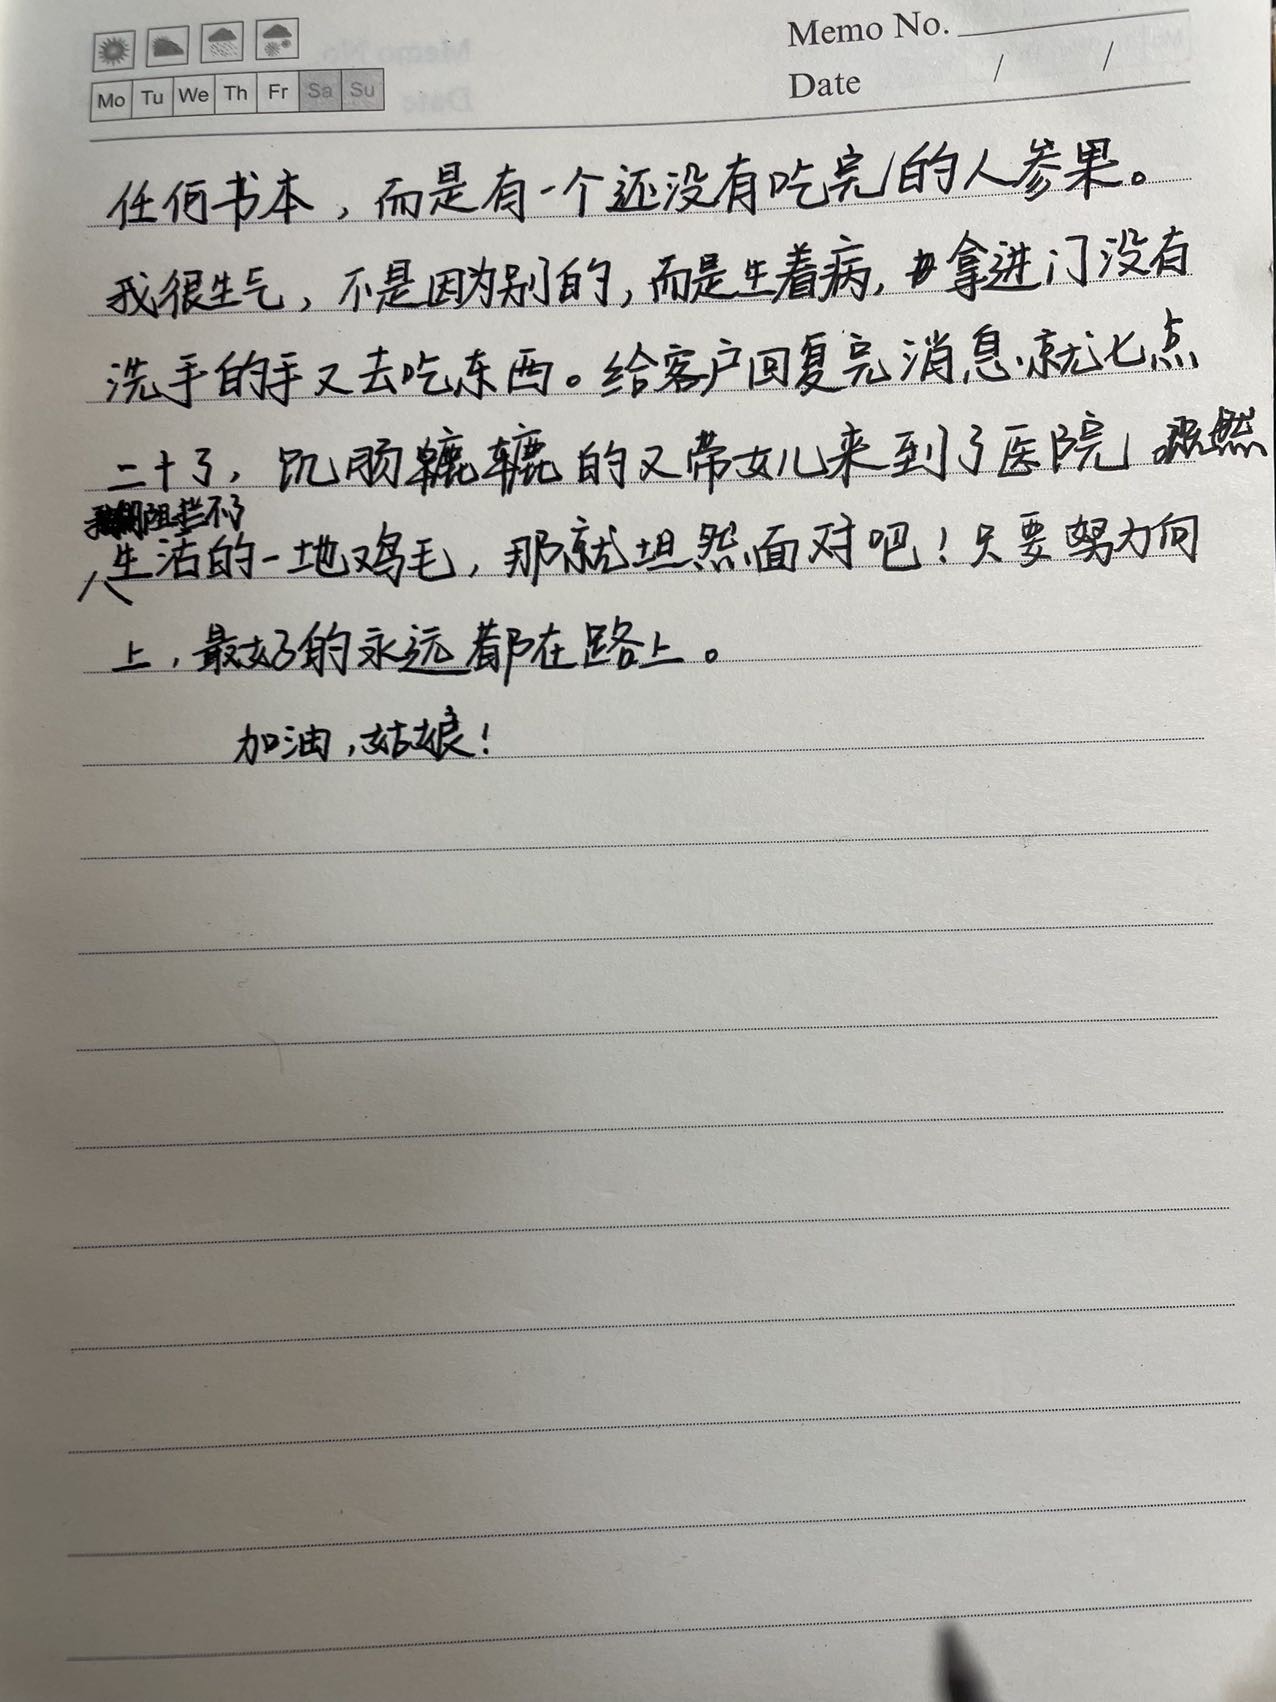 Memo No.
Date / /
Mo Tu We Th Fr Sa Su
任何书本，而是有一个还没有吃完的人参果。
我很生气，不是因为别的，而是生着病，拿进门没有
洗手的手又去吃东西。给客户回复完消息就七点
二十了，饥肠辘辘的又带女儿来到了医院，既然
阻拦不了
生活的一地鸡毛，那就坦然面对吧！只要努力向
上，最好的永远都在路上。
加油，姑娘！